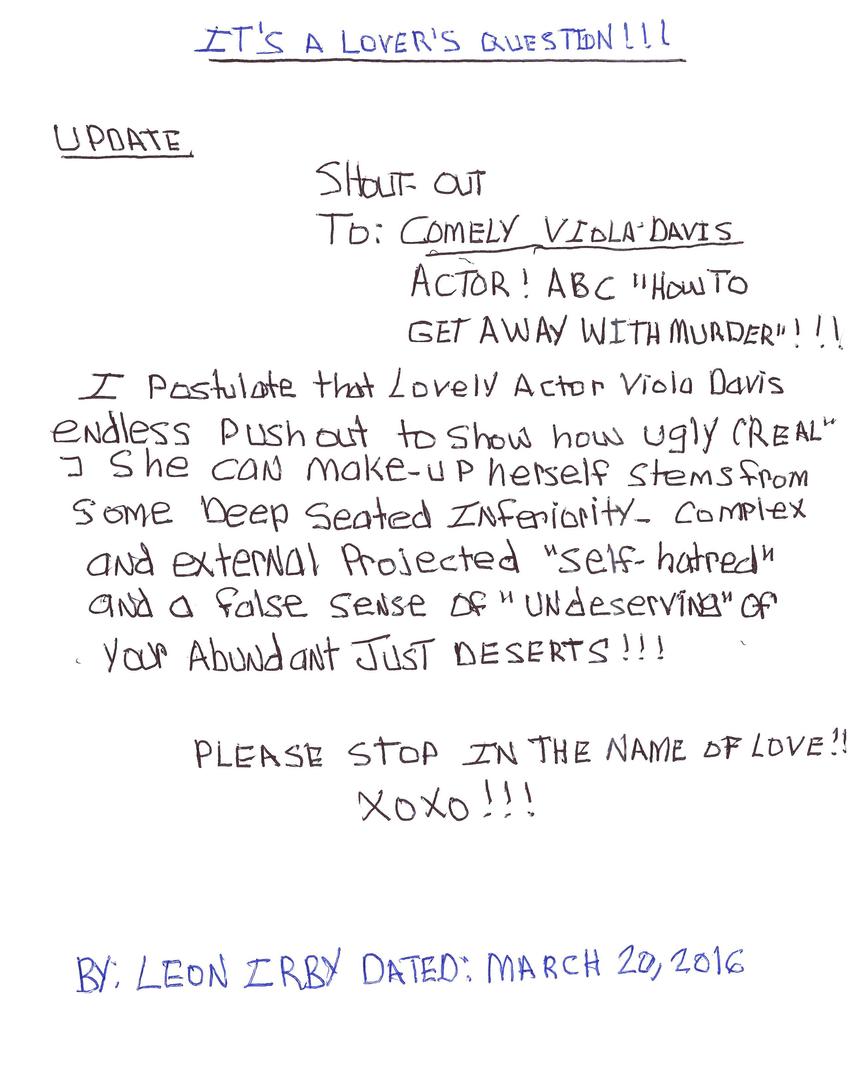 IT'S A LOVER'S QUESTION!!!
UPDATE
SHOUT- OUT
To: COMELY VIOLA DAVIS
ACTOR! ABC "HOW TO
GET AWAY WITH MURDER"!!!
I Postulate that Lovely Actor Viola Davis
endless Push out to show how ugly (REAL"
] She can make-up herself stems from
some Deep Seated Inferiority- Complex
and external Projected "self-hatred"
and a false sense of "undeserving" of
your Abundant JUST DESERTS!!!
PLEASE STOP IN THE NAME OF LOVE!!
XOXO!!!
BY: LEON IRBY DATED: MARCH 20, 2016